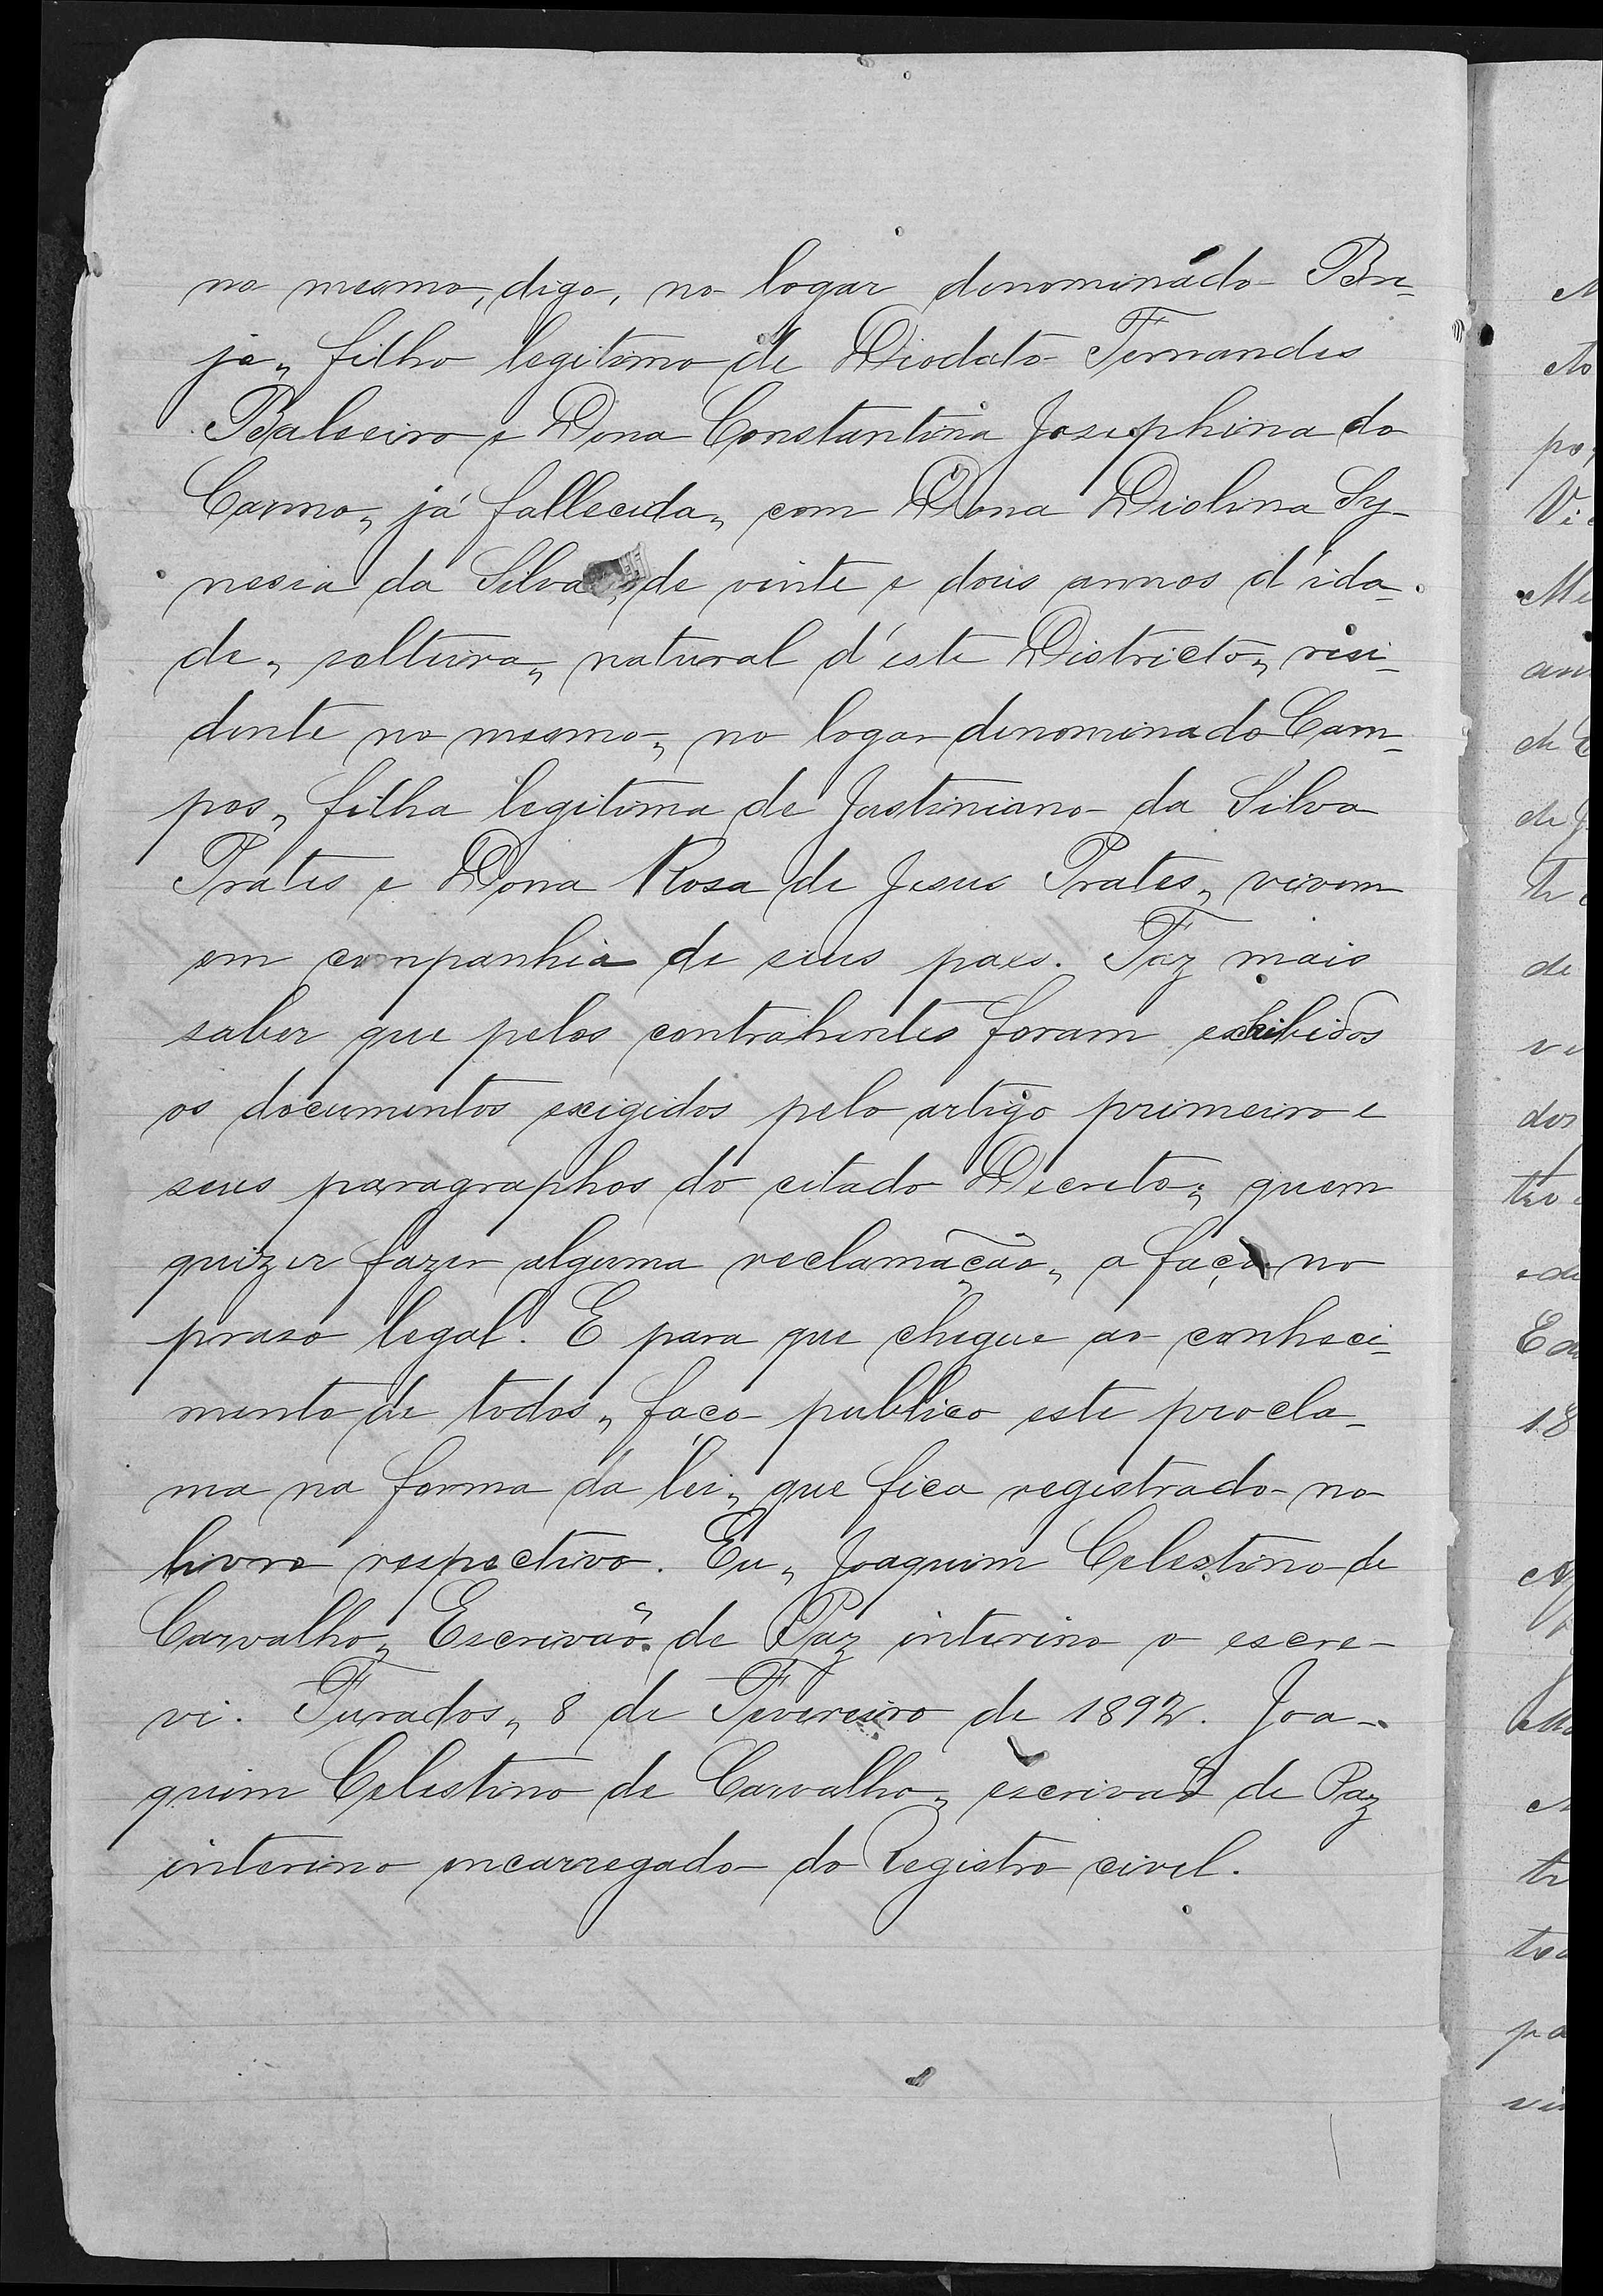 no mesmo, digo, no logar denominado Bre-
jo, filho legitimo de Diodato Fernandes
Baleeiro e Dona Constantina Josephina do
Carmo, já fallecida, com Dona Diolina Sy-
nesia da Silva, de vinte e dois annos d'ida-
de, solteira, natural d'este Districto, resi-
dente no mesmo, no logar denominado Cam-
pos, filha legitima de Justiniano da Silva
Prates e Dona Rosa de Jesus Prates, vivem
em companhia de seus paes. Faz mais
saber que pelos contrahentes foram exhibidos
os documentos exigidos pelo artigo primeiro e
seus paragraphos do citado Decreto; quem
quizer fazer alguma reclamação, a faça no
praso legal. E para que chegue ao conheci-
mento de todos, faço publico este procla-
ma na forma da lei, que fica registrado no
livro respectivo. Eu, Joaquim Celestino de
Carvalho, Escrivão de Paz interino o escre-
vi. Furados, 8 de Fevereiro de 1892. Joa-
quim Celestino de Carvalho, escrivaõ de Paz
interino encarregado do Registro civel.